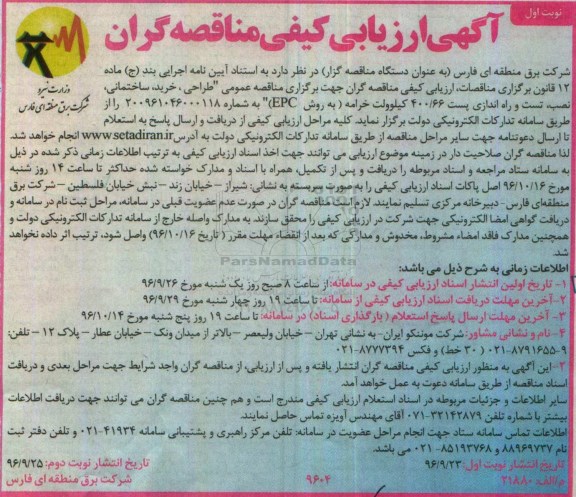 نوبت اول
آگهی ارزیابی کیفی مناقصه گران
وزارت نیرو
شرکت برق منطقه ای فارس
شرکت برق منطقه ای فارس (به عنوان دستگاه مناقصه گزار) در نظر دارد به استناد آیین نامه اجرایی بند (ج) ماده
۱۲ قانون برگزاری مناقصات، ارزیابی کیفی مناقصه گران جهت برگزاری مناقصه عمومی "طراحی ، خرید، ساختمانی،
نصب، تست و راه اندازی پست ۴۰۰/۶۶ کیلوولت خرامه ( به روش EPC)" به شماره ۲۰۰۹۶۱۰۴۶۰۰۰۱۱۸ را از
طریق سامانه تدارکات الکترونیکی دولت برگزار نماید. کلیه مراحل ارزیابی کیفی از دریافت و ارسال پاسخ به استعلام
تا ارسال دعوتنامه جهت سایر مراحل مناقصه از طریق سامانه تدارکات الکترونیکی دولت به آدرس www.setadiran.ir انجام خواهد شد.
لذا مناقصه گران صلاحیت دار در زمینه موضوع ارزیابی می توانند جهت اخذ اسناد ارزیابی کیفی به ترتیب اطلاعات زمانی ذکر شده در ذیل
به سامانه ستاد مراجعه و اسناد مربوطه را دریافت و پس از تکمیل، همراه با اسناد و مدارک خواسته شده حداکثر تا ساعت ۱۴ روز شنبه
مورخ ۹۶/۱۰/۱۶ اصل پاکات اسناد ارزیابی کیفی را به صورت سربسته به نشانی: شیراز – خیابان زند – نبش خیابان فلسطین – شرکت برق
منطقه‌ای فارس- دبیرخانه مرکزی تسلیم نمایند. لازم است مناقصه گران در صورت عدم عضویت قبلی در سامانه، مراحل ثبت نام در سامانه و
دریافت گواهی امضا الکترونیکی جهت شرکت در ارزیابی کیفی را محقق سازند. به مدارک واصله خارج از سامانه تدارکات الکترونیکی دولت و
همچنین مدارک فاقد امضاء مشروط، مخدوش و مدارکی که بعد از انقضاء مهلت مقرر ( تاریخ ۹۶/۱۰/۱۶) واصل شود، ترتیب اثر داده نخواهد
شد.
اطلاعات زمانی به شرح ذیل می باشد:
۱- تاریخ اولین انتشار اسناد ارزیابی کیفی در سامانه: از ساعت ۸ صبح روز یک شنبه مورخ ۹۶/۹/۲۶
۲- آخرین مهلت دریافت اسناد ارزیابی کیفی از سامانه: تا ساعت ۱۹ روز چهار شنبه مورخ ۹۶/۹/۲۹
۳- آخرین مهلت ارسال پاسخ استعلام ( بارگذاری اسناد) در سامانه: تا ساعت ۱۹ روز پنج شنبه مورخ ۹۶/۱۰/۱۴
۴- نام و نشانی مشاور: شرکت موننکو ایران- به نشانی تهران – خیابان ولیعصر – بالاتر از میدان ونک – خیابان عطار – پلاک ۱۲ – تلفن:
۰۲۱-۸۷۹۱۶۵۵-۹ ( ۳۰ خط) و فکس ۰۲۱-۸۷۷۷۳۹۴
۲- این آگهی به منظور ارزیابی کیفی مناقصه گران انتشار یافته و پس از ارزیابی، از مناقصه گران واجد شرایط جهت مراحل بعدی و دریافت
اسناد مناقصه از طریق سامانه دعوت به عمل خواهد آمد.
سایر اطلاعات و جزئیات مربوطه در اسناد استعلام ارزیابی کیفی مندرج است و هم چنین مناقصه گران می توانند جهت دریافت اطلاعات
بیشتر با شماره تلفن ۳۲۱۴۲۸۷۹-۰۷۱ آقای مهندس آویزه تماس حاصل نمایند.
اطلاعات تماس سامانه ستاد جهت انجام مراحل عضویت در سامانه: تلفن مرکز راهبری و پشتیبانی سامانه ۴۱۹۳۴-۰۲۱ و تلفن دفتر ثبت
نام ۸۸۹۶۹۷۳۷ و ۸۵۱۹۳۷۶۸-۰۲۱ می باشد.
تاریخ انتشار نوبت اول: ۹۶/۹/۲۳
تاریخ انتشار نوبت دوم: ۹۶/۹/۲۵
م/الف: ۲۱۸۸۰
۹۶۰۴
شرکت برق منطقه ای فارس
ParsNamadData